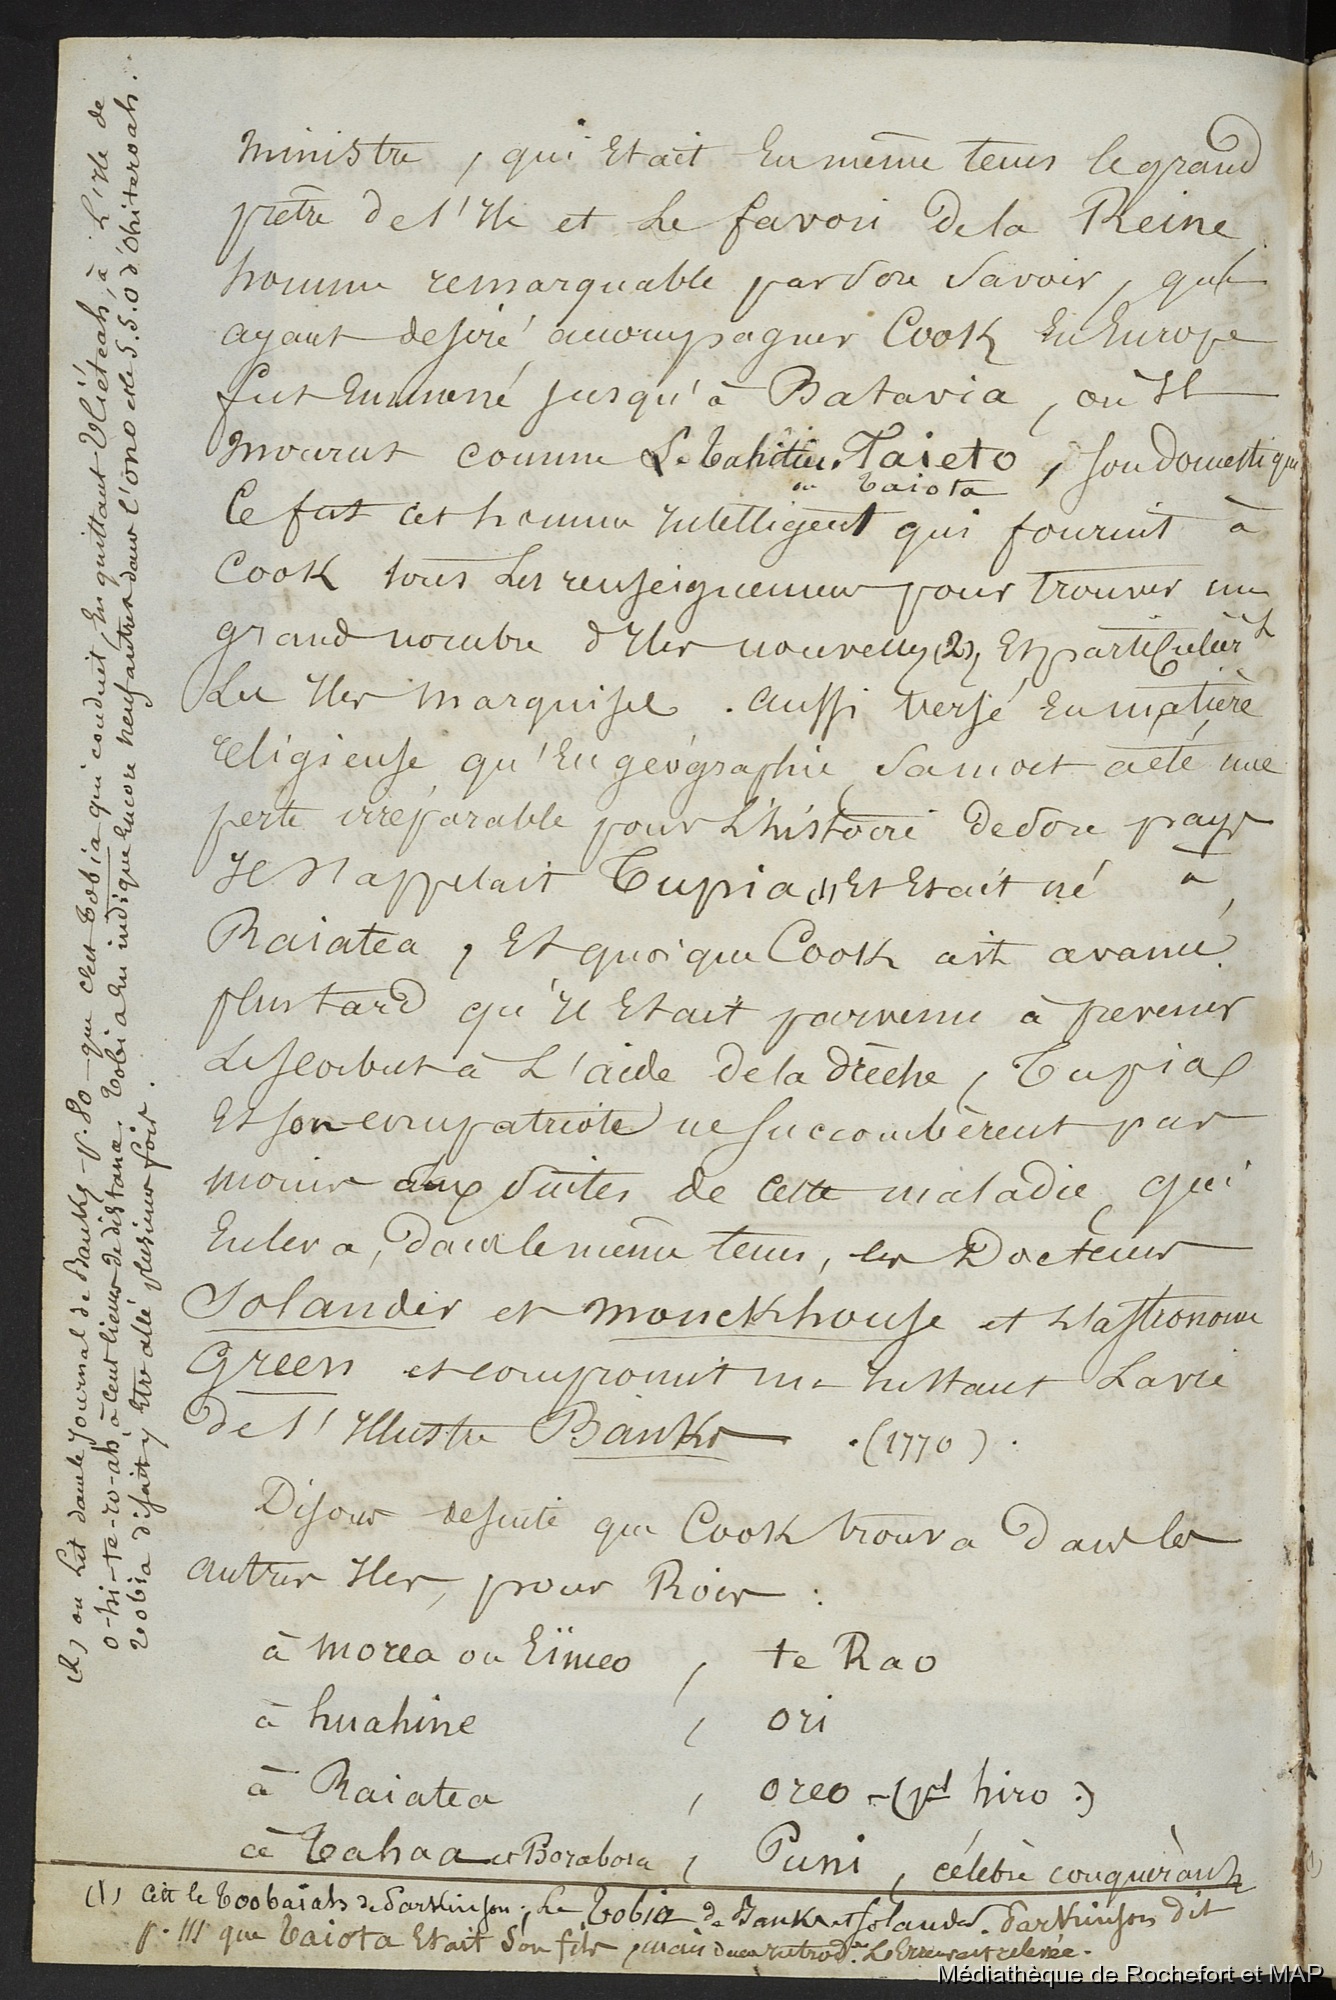 ministre, qui Etait En même tems le grand
prêtre de l'Ile et Le favori de la Reine
homme remarquable par son savoir, qui
ayant desiré accompagner Cook En Europe
fut Emmené jusqu'à Batavia, où Il
mourut comme Le tahitien Taieto, son domestique
ou taiota
Ce fut cet homme Intelligent qui fournit à
Cook tous Les renseignemens pour trouver un
grand nombre d'Iles nouvelles (2), Et particulièrt
Les Iles marquises. aussi versé En matière
religieuse qu'En géographie, sa mort a été une
perte irréparable pour L'histoire de son pays
Il s'appelait Tupia (1) Et Etait né à
Raiatea, Et quoique Cook ait avancé
plus tard qu'Il Etait parvenu à prevenir
Le scorbut à L'aide de la drêche, Tupia
Et son compatriote ne succombèrent pas
moins aux suites de cette maladie, qui
Enleva, dans le même tems, les Docteurs
Solander et monckhouse et L'astronome
Green et compromit un Instant La vie
de l'Illustre Banks. (1770).
Disons desuite que Cook trouva dans les
autres Iles, pour Rois :
à morea ou Eïmeo, te Rao
à huahine, ori
à Raiatea, oreo - (pt hiro.)
à tahaa et Borabora, Puni, célèbre conquérant
(1) C'est le toobaiah de Parkinson; Le tobia de Banks et Solander. Parkinson dit
p. 111 que taiota Etait son fils, mais dans introd.on L'Erreur est relevée.
(2) on Lit dans le Journal de Banks - p. 80 - que c'est tobia qui conduit, En quittant Ulieteah, à L'Ile de
o-hi-te-ro-ah, à cent lieues de distance. tobia lui indique Encore neuf autres dans l'ono et le S.S.O d'ohiteroah.
tobia disait y Etre allé plusieurs fois.
Médiathèque de Rochefort et MAP